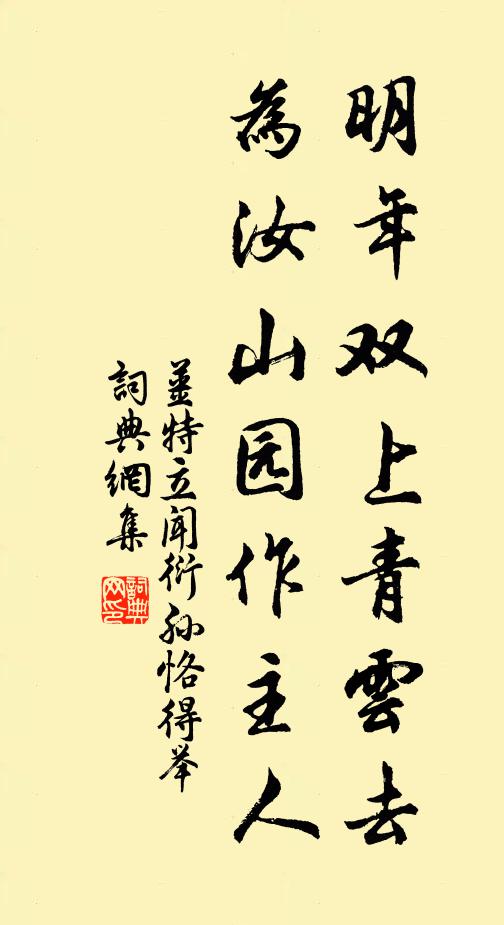 明年双上青雲去
為汝山园作主人
姜特立聞衍孙恪得举
詞典網集
詞典網印